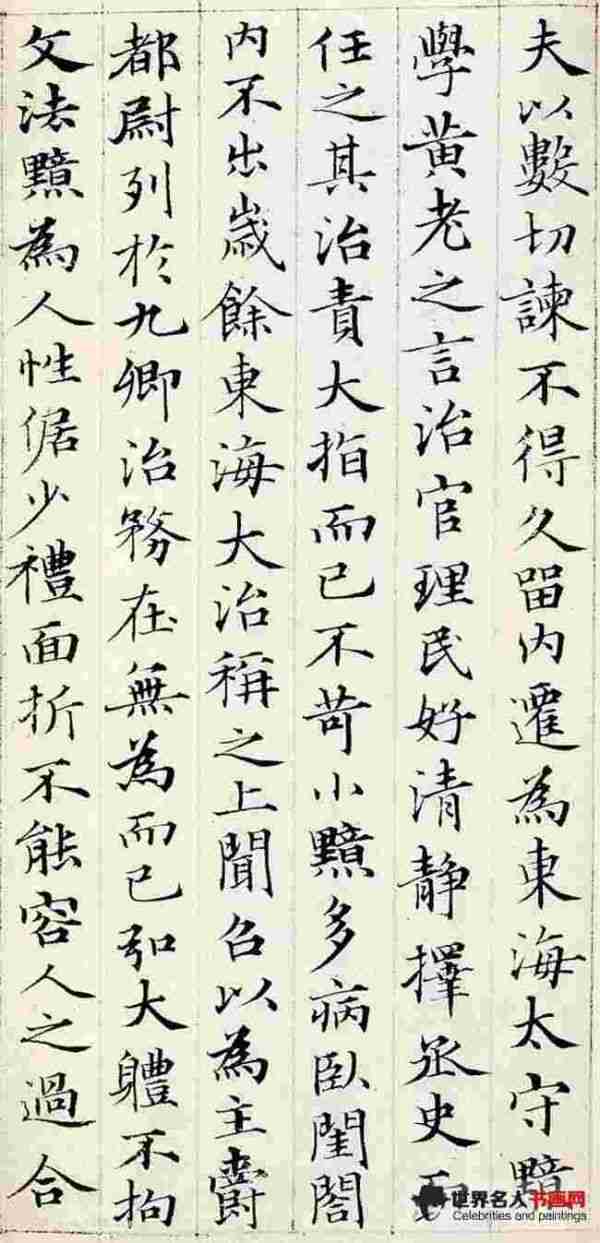 夫以數切諫不得久留内遷為東海太守黯
學黃老之言治官理民好清静擇丞史而
任之其治責大指而已不苛小黯多病臥閨閤
内不出歲餘東海大治稱之上聞召以為主爵
都尉列於九卿治務在無為而已弘大軆不拘
文法黯為人性倨少禮面折不能容人之過合
世界名人书画网
Celebrities and paintings